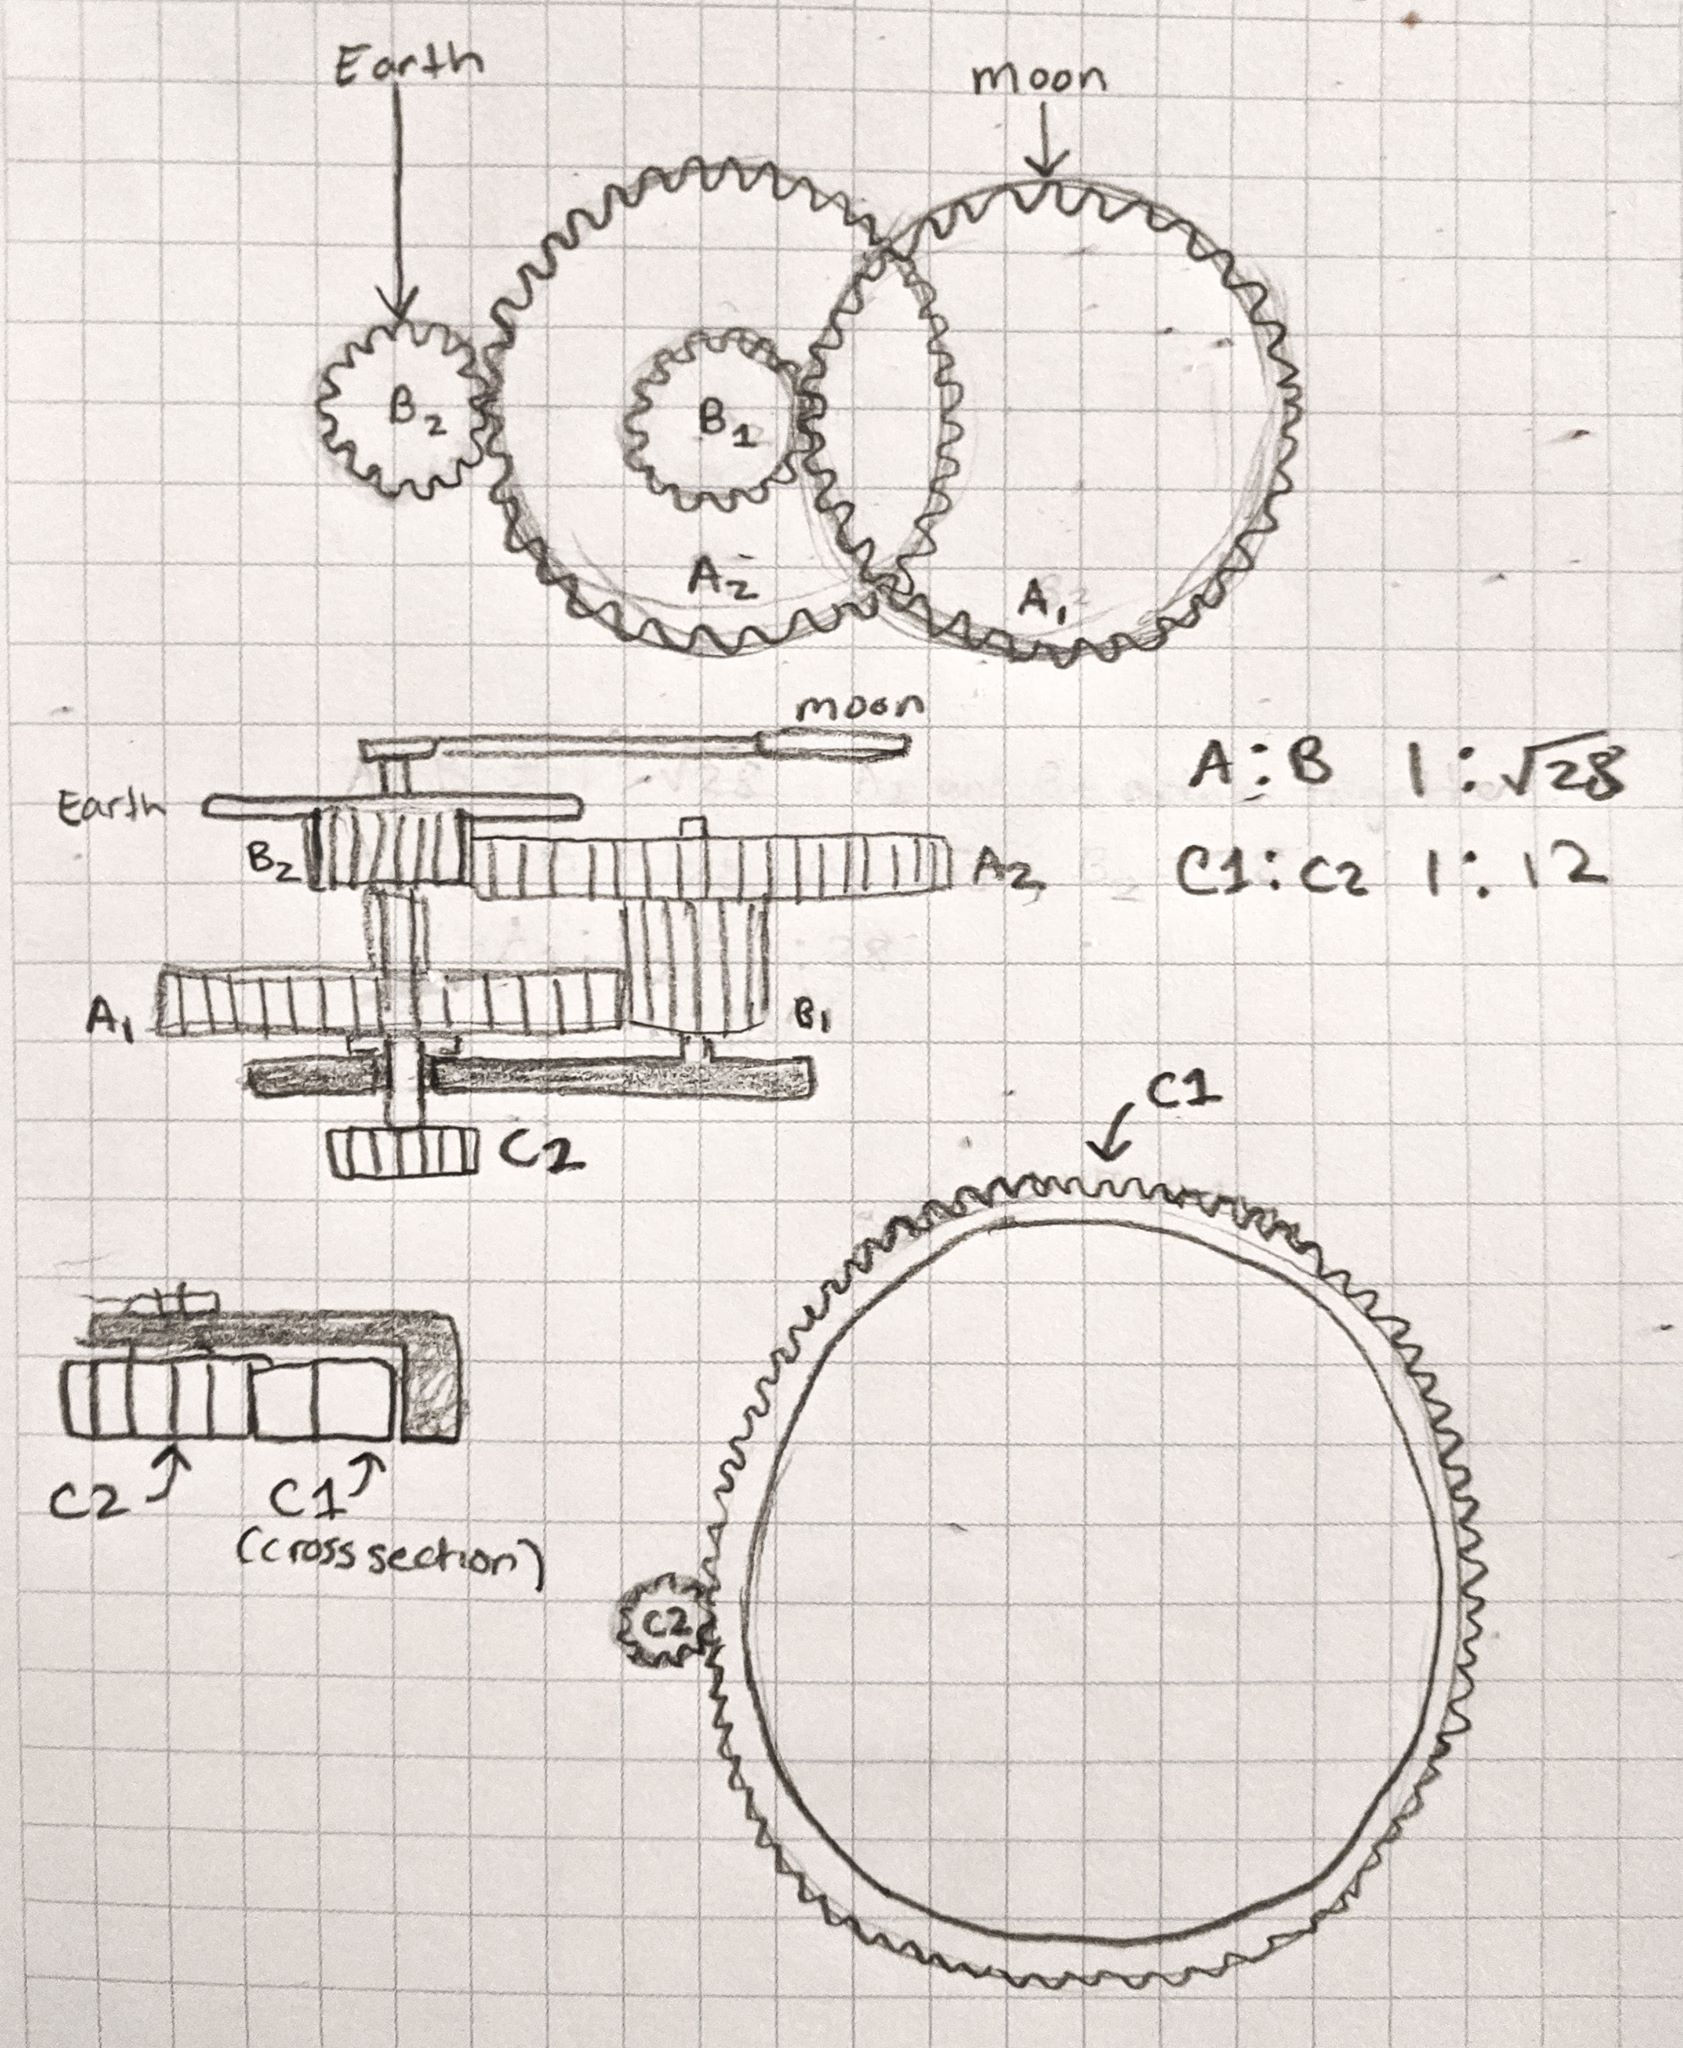 Earth
moon
B2
B1
A2
A1
moon
Earth
B2
A2
A:B 1:√28
C1:C2 1:12
A1
B1
C2
C1
C2
C1
(cross section)
C2